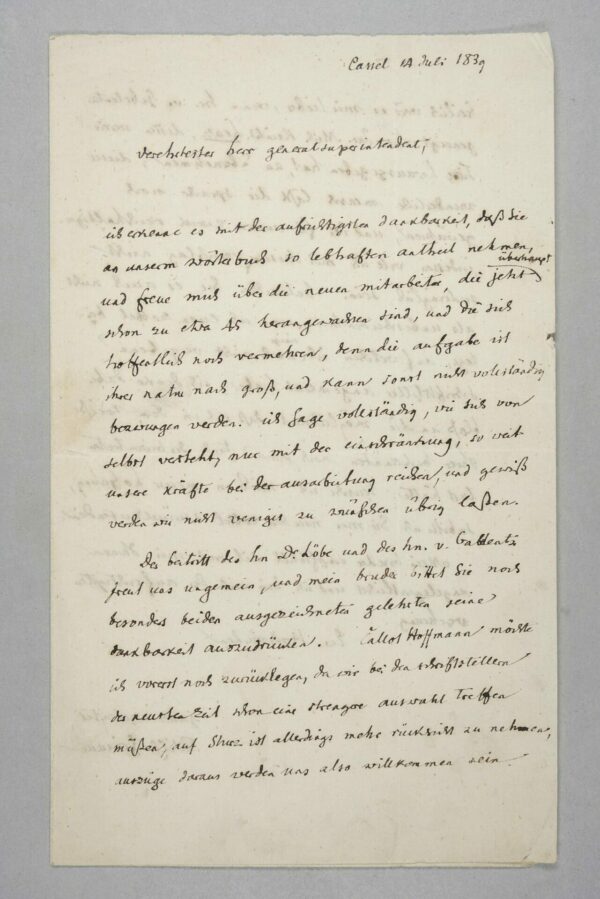 Cassel 14 Juli 1839
Verehrtester herr generalsuperintendent,
ich erkenne es mit der aufrichtigsten dankbarkeit, daß Sie
an unserm wörterbuch so lebhaften antheil nehmen,
und freue mich über die neuen mitarbeiter, die jetzt überhaupt
schon zu etwa 45 herangewachsen sind, und die sich
hoffentlich noch vermehren, denn die aufgabe ist
ihrer natur nach groß, und kann sonst nicht vollständig
bezwungen werden. ich sage vollständig, wie sich von
selbst versteht, nur mit der einschränkung, so weit
unsere kräfte bei der ausarbeitung reichen, und gewiß
werden wir nicht weniges zu wünschen übrig laßen.
Der beitritt des hn Dr Löbe und des hn. v. Gabelentz
freut uns ungemein, und mein bruder bittet Sie noch
besonders beiden ausgezeichneten gelehrten seine
dankbarkeit auszudrücken. Callot Hoffmann möchte
ich vorerst noch zurücklegen, da wir bei den schriftstellern
der neusten Zeit schon eine strengere auswahl treffen
müßen, auf Sturz ist allerdings mehr rücksicht zu nehmen,
auszüge daraus werden uns also willkommen sein.